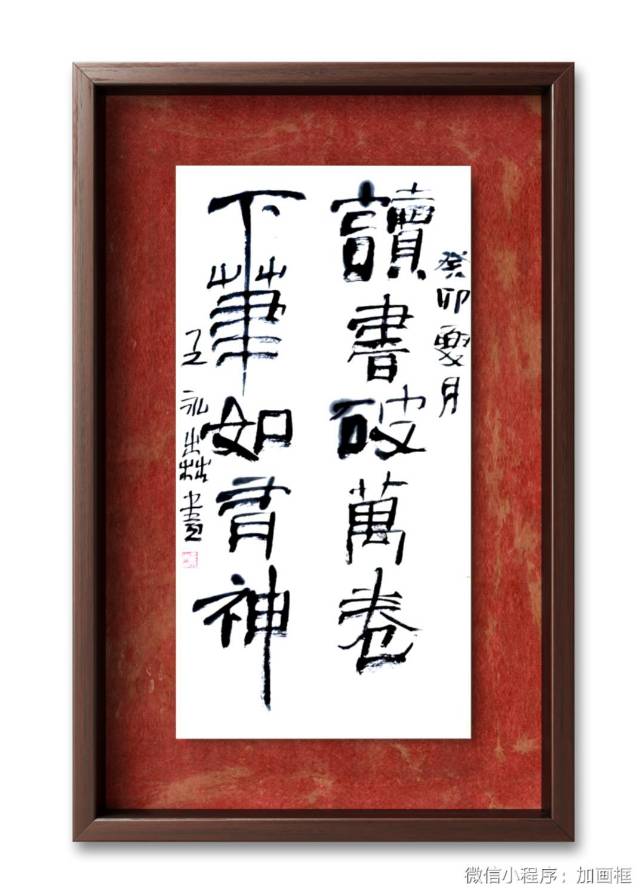 癸卯夏月
讀書破萬卷
下筆如有神
微信小程序：加画框